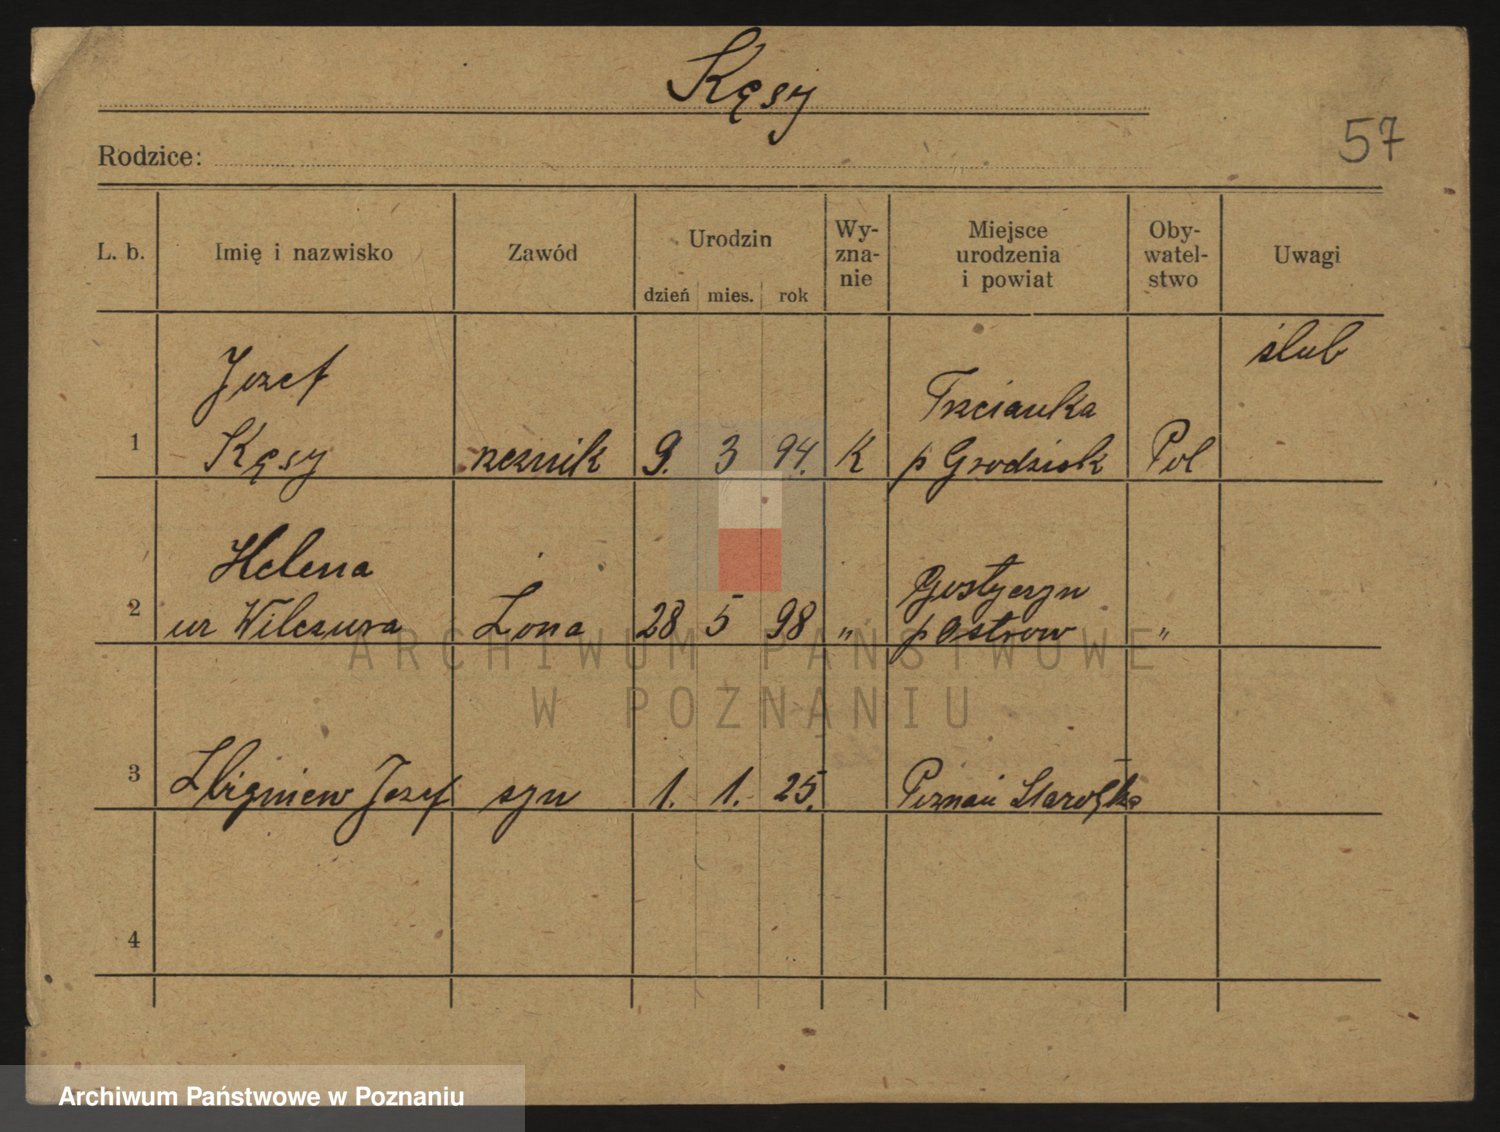 Kęsy
57
Rodzice:
L. b. Imię i nazwisko Zawód Urodzin dzień mies. rok Wy-zna-nie Miejsce urodzenia i powiat Oby-watel-stwo Uwagi
ślub
Jozef
Trzcianka
1 Kęsy rzeznik 9. 3 94. K p Grodzisk Pol
Helena
Gostyczyn
2 ur Wilczura Żona 28 5 98 „ p Ostrow „
ARCHIWUM PAŃSTWOWE
W POZNANIU
3 Zbigniew Jozef syn 1. 1. 25. Poznań Starołęka
4
Archiwum Państwowe w Poznaniu